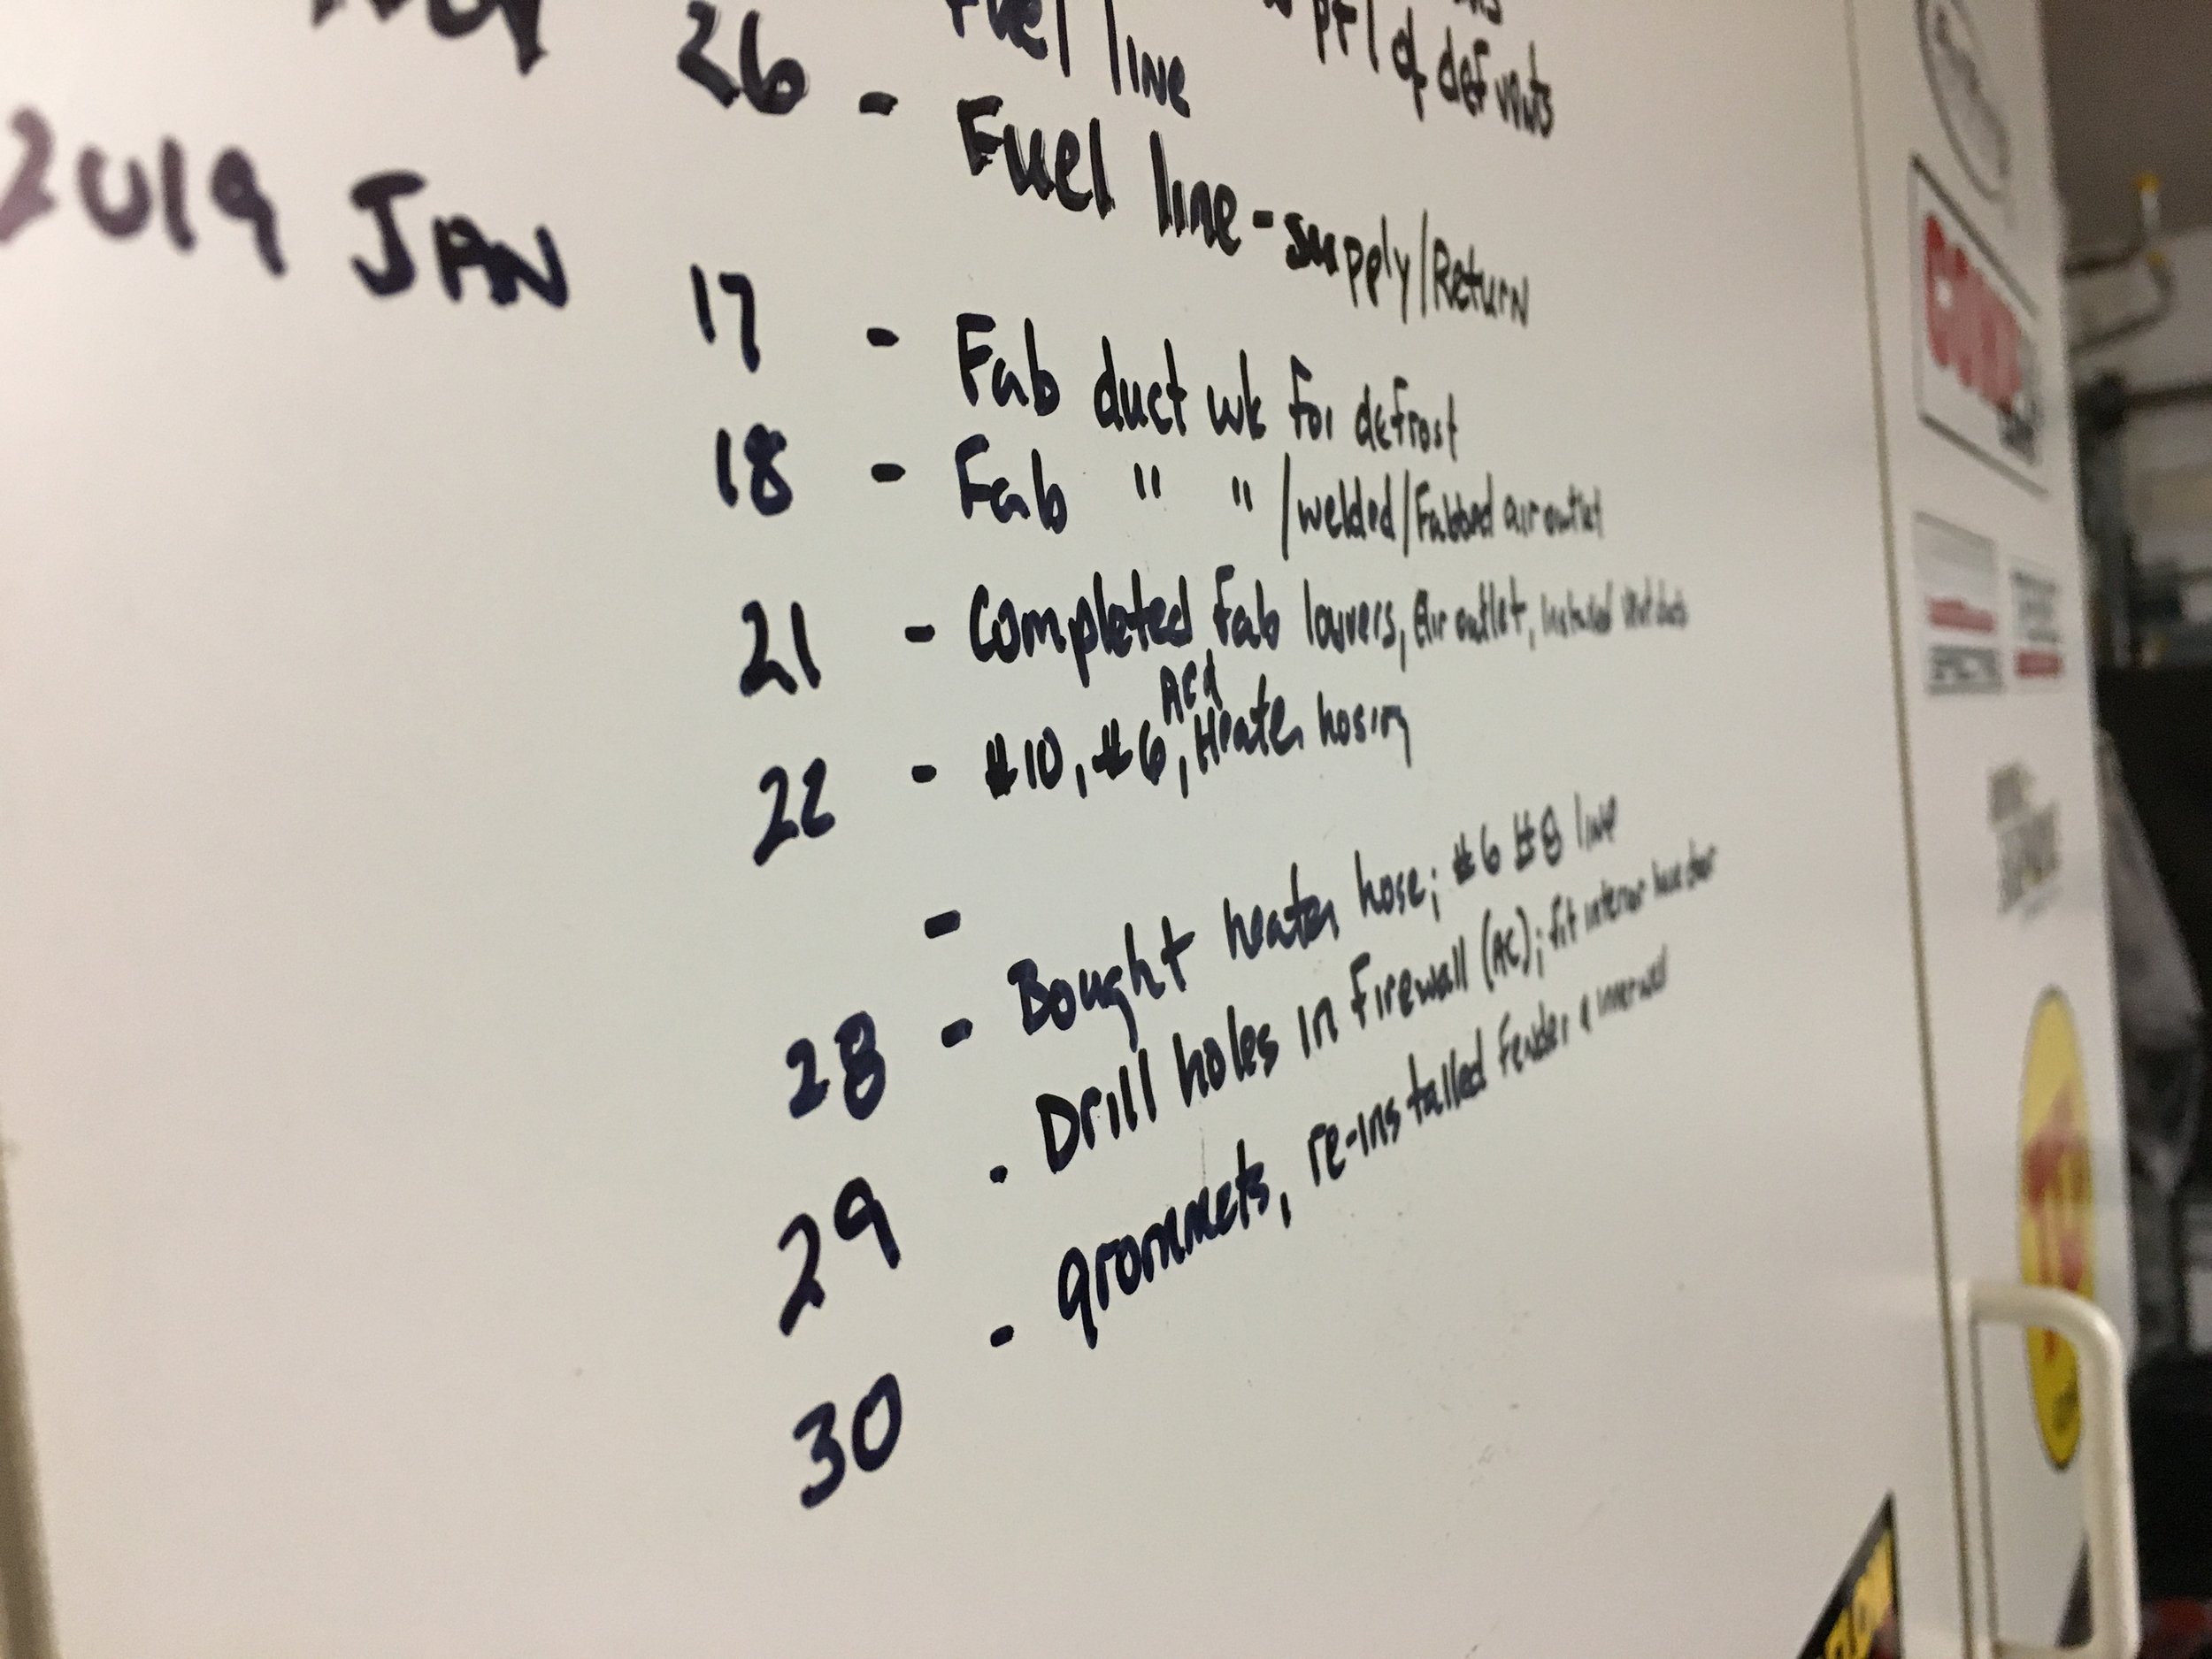 26 - Fuel line
of def vents
Fuel line - supply/Return
2019 JAN
17 - Fab duct wk for defrost
18 - Fab " " /welded/Fabbed air outlet
21 - Completed Fab louvers, Air outlet, installed vent ducts
22 - #10, #6, Heater hosing
-
28 - Bought heater hose; #6 #8 line
29 - Drill holes in Firewall (AC); fit interior
30 - grommets, re-installed Fender & innerwell